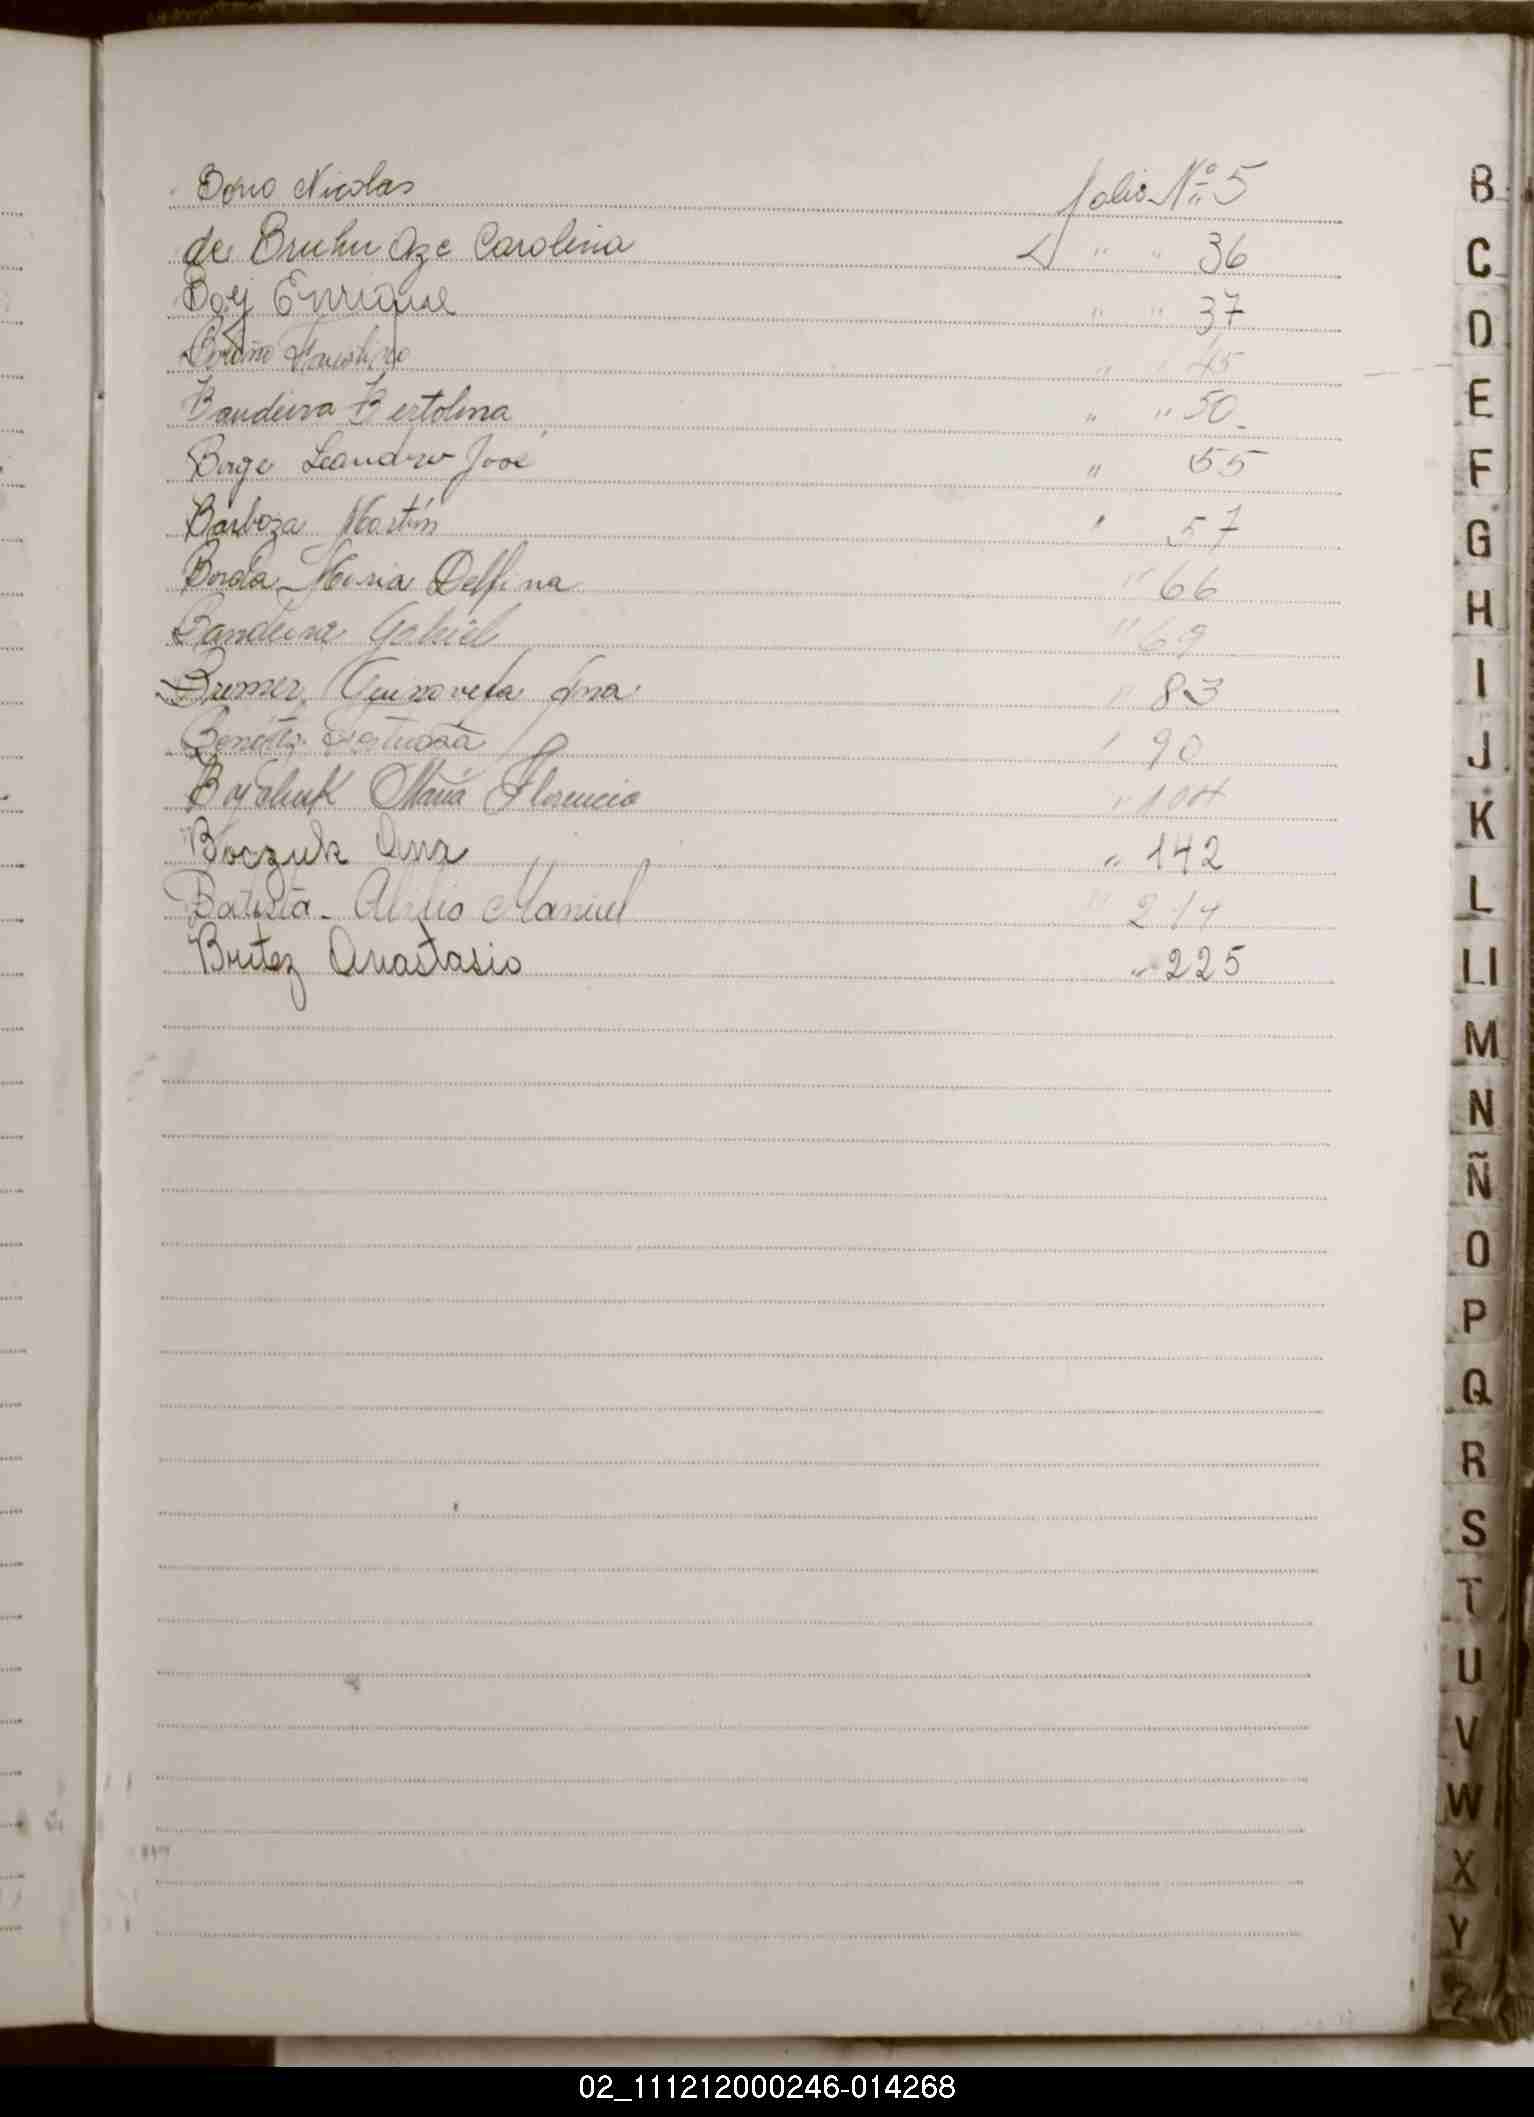 Nicolas folio Nº 5
de Bruhn Aze Carolina " " 36
Boy Enrique " " 37
" " 45
Bandeira Bertolina " " 50
Borge Leandro José " 55
Barboza Martín " 57
Borda Maria Delfina " 66
Bandeira Gabriel " 69
Bremer Ana " 83
" 90
María Florencia " 104
Boczuk Ana " 142
Batista - Manuel " 214
Britez Anastasio " 225
B
C
D
E
F
G
H
I
J
K
L
Ll
M
N
Ñ
O
P
Q
R
S
T
U
V
W
X
Y
Z
02_111212000246-014268